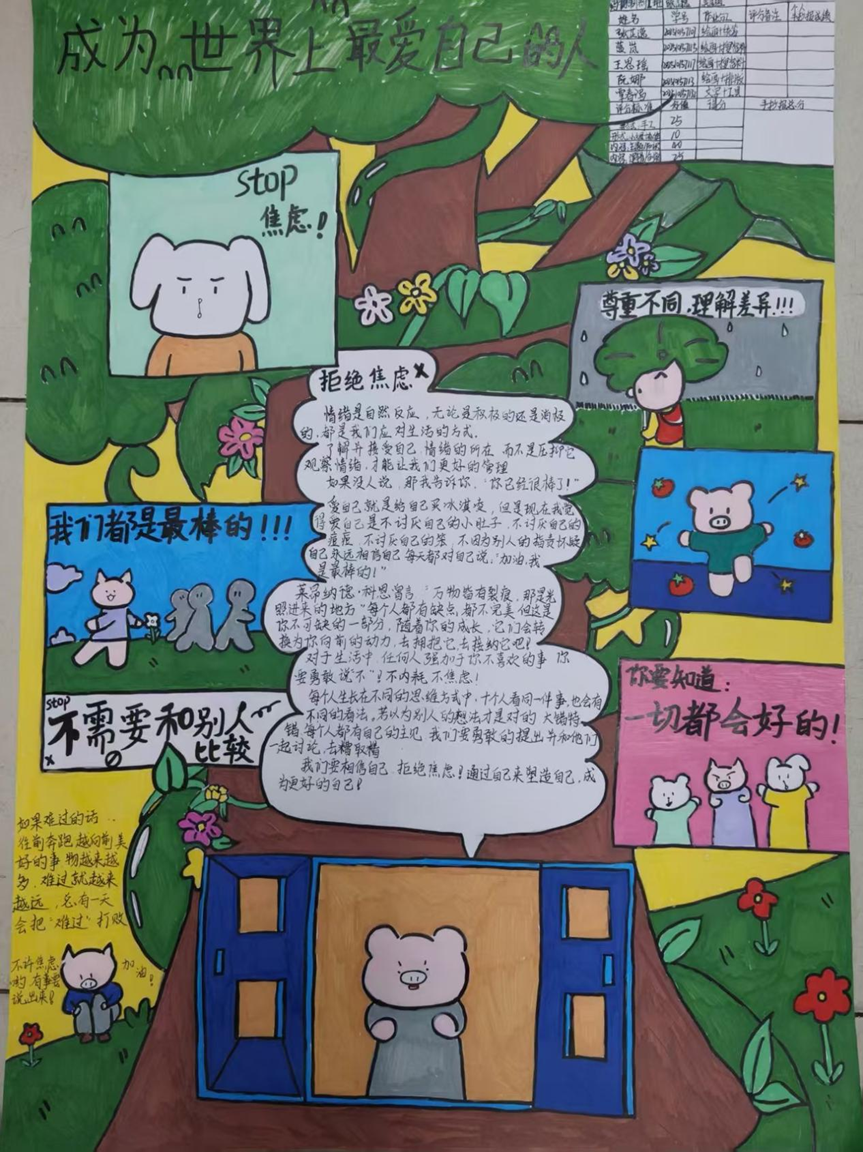 成为世界上最爱自己的人
姓名 学号
25
10
40
25
stop
焦虑!
尊重不同,理解差异!!!
拒绝焦虑
情绪是自然反应,无论是积极的还是消极
的,都是我们应对生活的方式.
了解并接受自己情绪的所在 而不是压抑它
观察情绪,才能让我们更好的管理
如果没人说,那我告诉你,"你已经很棒了!"
爱自己就是给自己买冰淇凌,但是现在我觉
得爱自己是不讨厌自己的小肚子,不讨厌自己的
痘痘,不讨厌自己的笨,不因为别人的指责
自己永远相信自己 每天都对自己说,"加油,我
是最棒的!"
莱昂纳德·科恩 "万物皆有裂痕,那是光
照进来的地方"每个人都有缺点,都不完美但这是
你不可缺的一部分,随着你的成长,它们会转
换为你向前的动力,去拥抱它,去接纳它吧!
对于生活中,任何人强加于你不喜欢的事 你
要勇敢说"不"!不内耗 不焦虑!
每个人生长在不同的思维方式中,十个人看同一件事,也会有
不同的看法,若以为别人的想法才是对的 大错特
错,每个人都有自己的主见 我们要勇敢的提出并和他们
一起讨论,去糟取精
我们要相信自己,拒绝焦虑!通过自己来塑造自己,成
为更好的自己!
我们都是最棒的!!!
stop
不需要和别人
比较
你要知道:
一切都会好的!
如果难过的话..
往前奔跑 越向前美
好的事物越来越
多,难过就越来
越远,总有一天
会把"难过"打败
不许焦虑
哟,有事要
说出来!
加油!